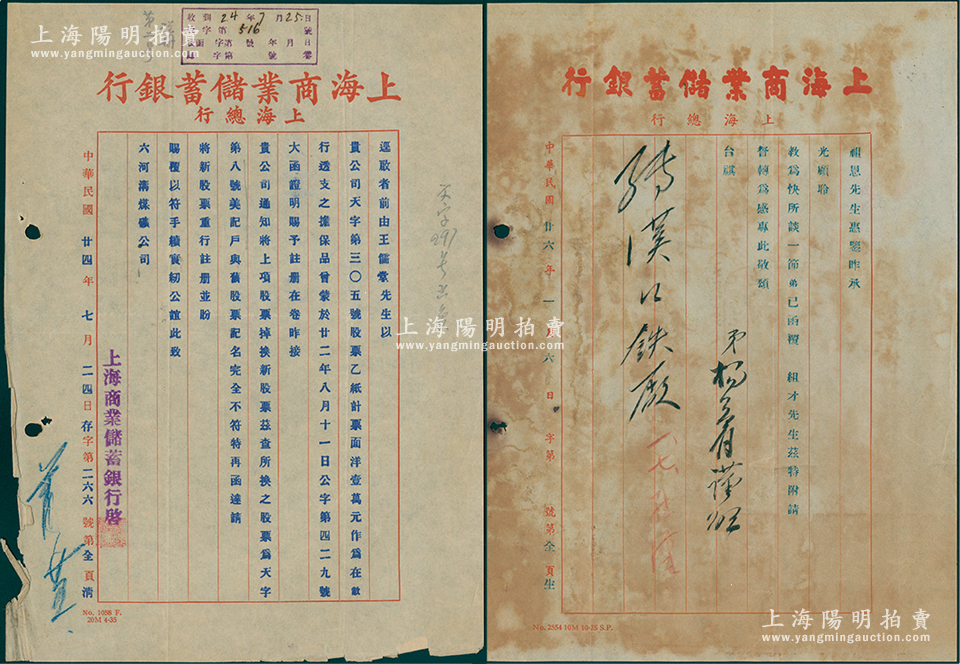 收到 24年7月25日
字第 516 號
上海商業儲蓄銀行
上海總行
逕啟者前由王儒堂先生以
貴公司天字第三〇五號股票乙紙計票面洋壹萬元作為在敝
行透支之擔保品曾蒙於廿二年八月十一日公字第四二九號
大函證明賜予註册在卷昨接
貴公司通知將上項股票掉換新股票茲查所換之股票為天字
第八號美記戶與舊股票記名完全不符特再函達請
將新股票重行註册並盼
賜覆以符手續實紉公誼此致
六河溝煤礦公司
上海商業儲蓄銀行啓
中華民國廿四年七月二四日存字第二六六號第全頁清
No. 1058 F.
20M 4-35
上海商業儲蓄銀行
上海總行
組恩先生惠鑒昨承
光顧聆
教為快所談一節弟已函複 組才先生茲特附請
督轉為感專此敬頌
台祺
弟楊
轉漢口鉄廠
中華民國廿六年一月六日 字第 號第全頁生
No. 2554 10M 10-35 S.P.
上海陽明拍賣
www.yangmingauction.com
上海陽明拍賣
www.yangmingauction.com
上海陽明拍賣
www.yangmingauction.com
上海陽明拍賣
www.yangmingauction.com
上海陽明拍賣
www.yangmingauction.com